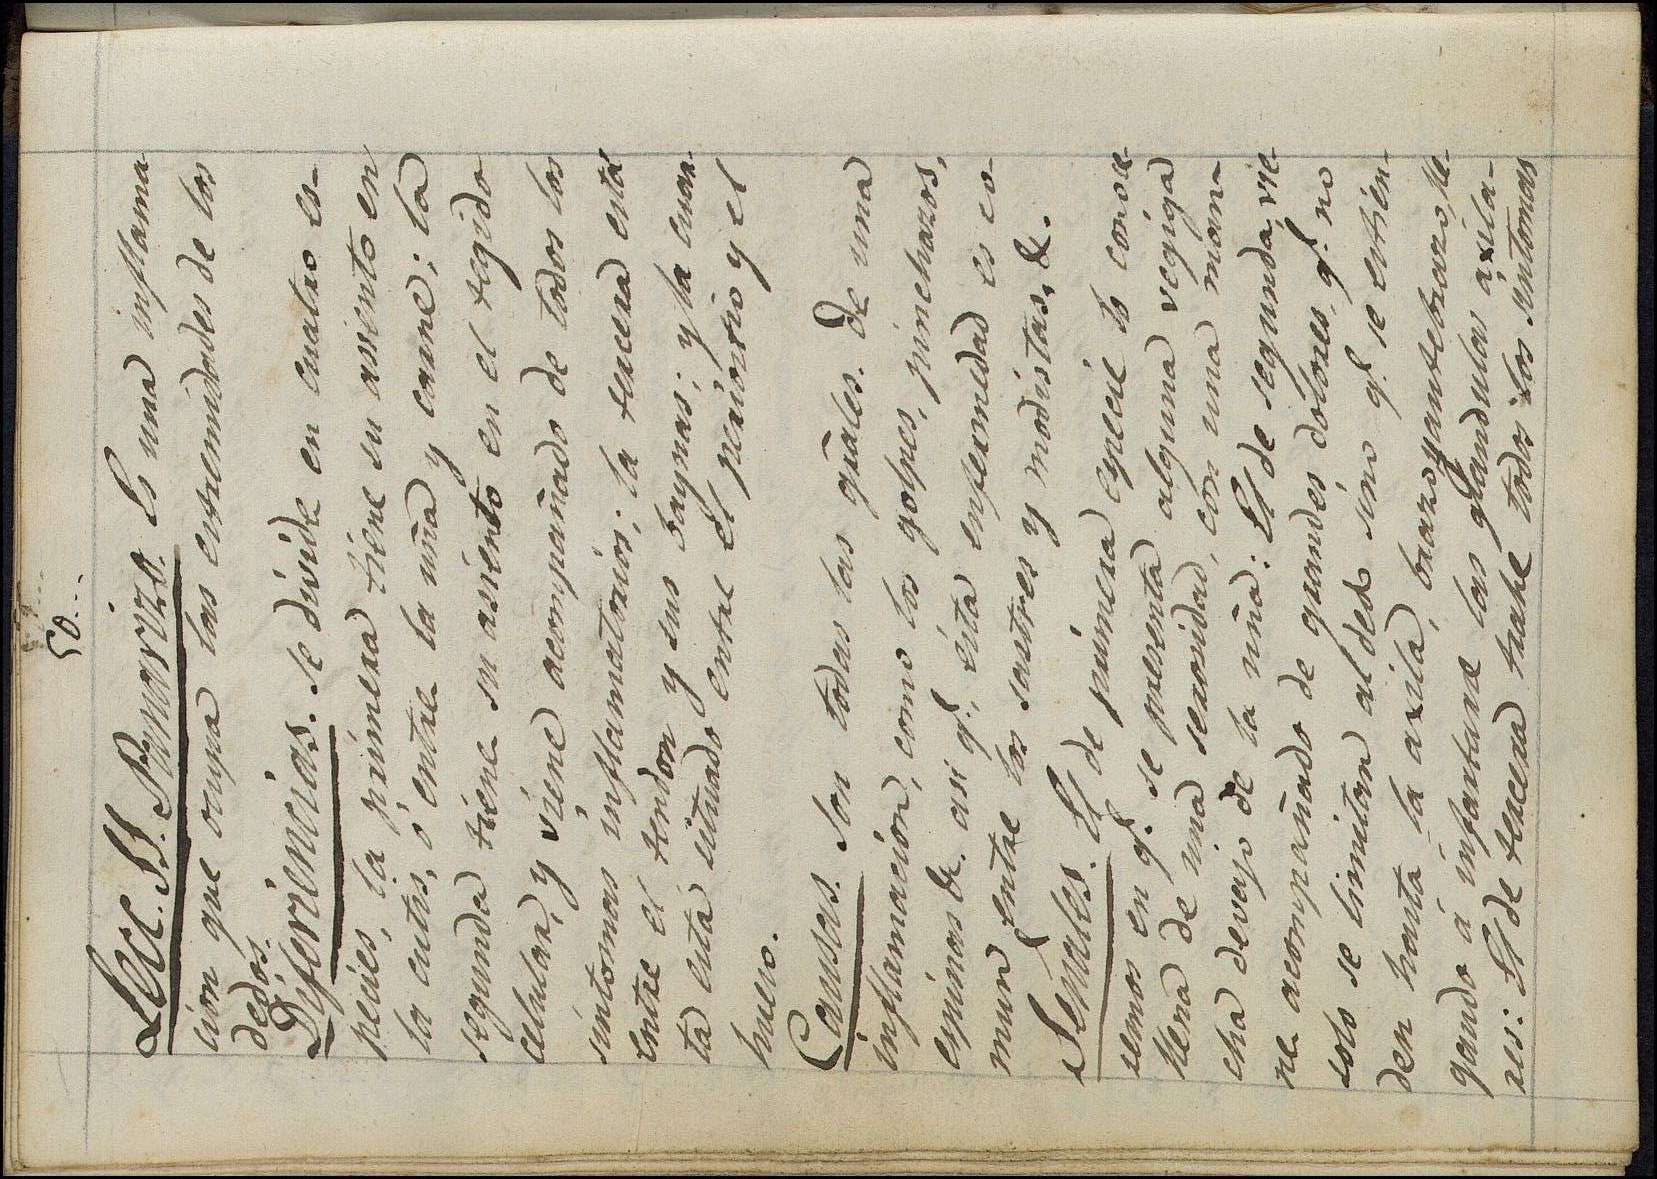 50...
Lecc. 11. Panarizo. Es una inflama-
cion que ocupa las extremidades de los
dedos.
Diferiencias. Se divide en cuatro es-
pecies, la primera tiene su asiento en
la cutis, ó entre la uña y carne; la
segunda tiene su asiento en el tegido
celular, y viene acompañado de todos los
sintomas inflamatorios; la tercera está
entre el tendon y sus baynas; y la cuar-
ta está situado entre el periostio y el
hueso.
Causas. Son todas las gũales. de una
inflamacion, como los golpes, pinchazos,
espinas &. asi q.e esta enfermedad es co-
mun entre los sastres y modistas, &.
Señales. El de primera especie lo conoce-
remos en q.e se presenta alguna vegiga
llena de una serosidad, con una man-
cha devajo de la uña: El de segunda, vie-
ne acompañado de grandes dolores, q.e no
solo se limitan al dedo sino q.e se estien-
den hasta la axila, brazo y antebrazo, lle-
gando á infartarse las glandulas axila-
res: El de tercera trahe todos los sintomas